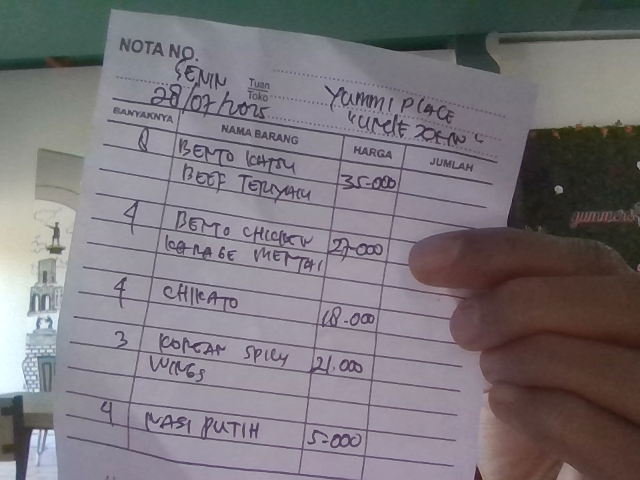 NOTA NO.
SENIN
28/07/2025
Tuan
Toko
YUMMI PLACE
"UNCLE JOHN"
BANYAKNYA NAMA BARANG HARGA JUMLAH
8 BENTO KATSU
BEEF TERIYAKI 35.000
4 BENTO CHICKEN 27.000
KARAGE MENTAI
4 CHIKATO 18.000
3 KOREAN SPICY 21.000
WINGS
4 NASI PUTIH 5.000